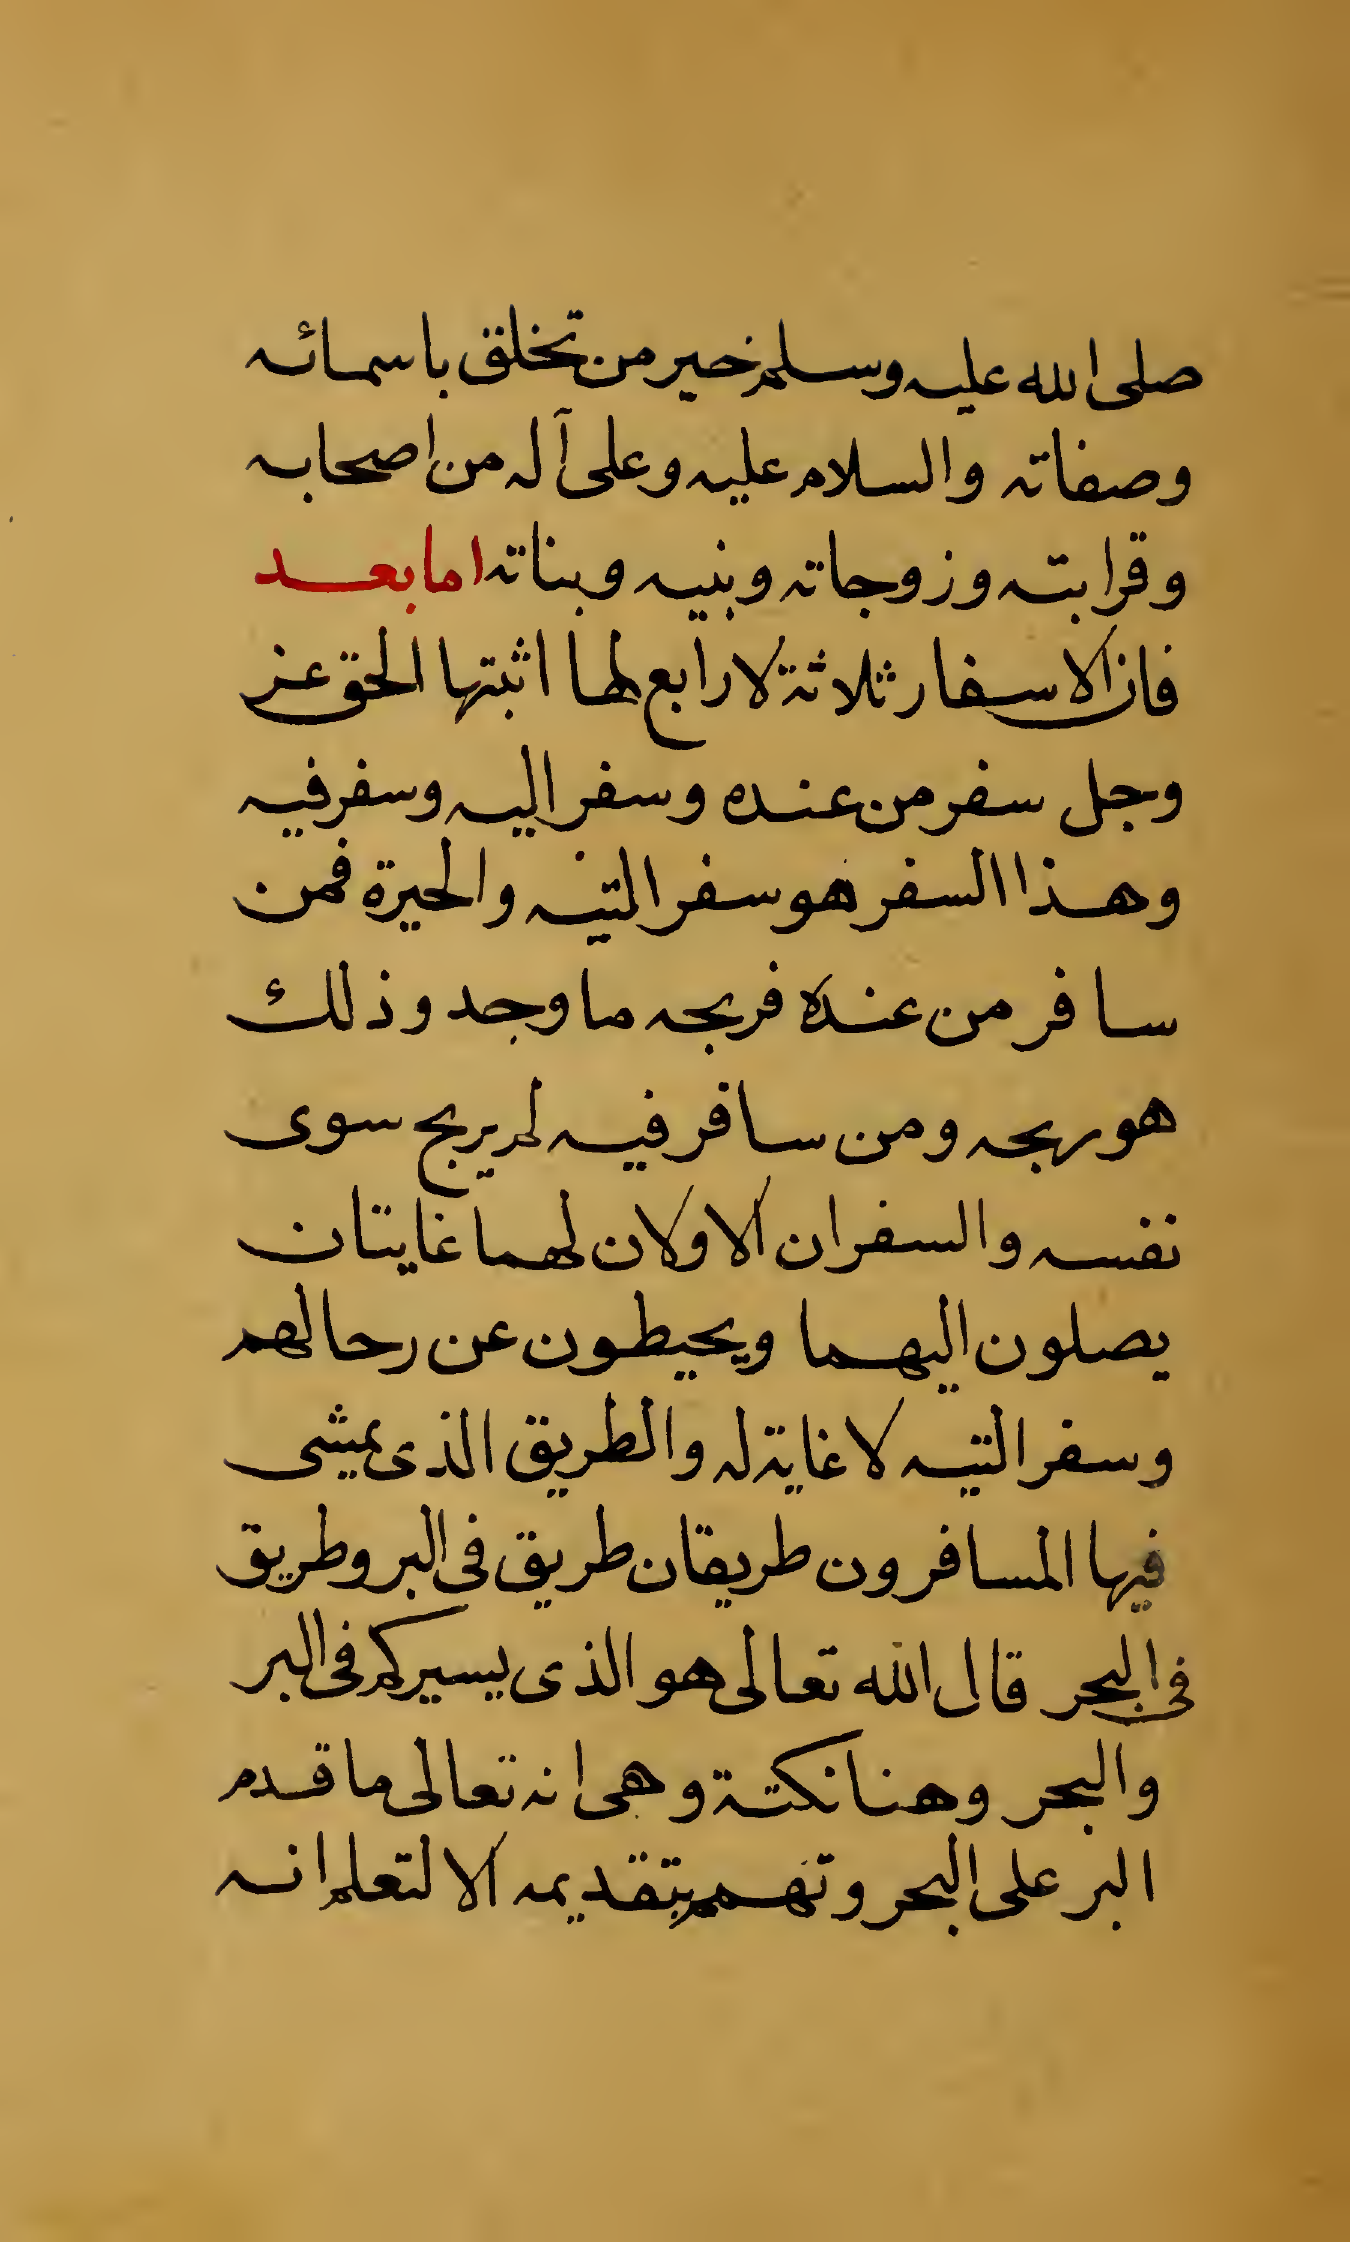 صلى الله عليه وسلم خير من تخلق باسمائه
وصفاته والسلام عليه وعلى آله من اصحابه
وقرابته وزوجاته وبنيه وبناته اما بعد
فان الاسفار ثلاثة لا رابع لها اثبتها الحق عز
وجل سفر من عنده وسفر اليه وسفر فيه
وهذا السفر هو سفر التيه والحيرة فمن
سافر من عنده فربحه ما وجد وذلك
هو ربحه ومن سافر فيه لم يربح سوى
نفسه والسفران الاولان لهما غايتان
يصلون اليهما ويحيطون عن رحالهم
وسفر التيه لا غاية له والطريق الذى يمشى
فيها المسافرون طريقان طريق فى البر وطريق
فى البحر قال الله تعالى هو الذى يسيركم فى البر
والبحر وهنا نكتة وهى انه تعالى ما قدم
البر على البحر وتهمم بتقديمه الا لتعلم انه